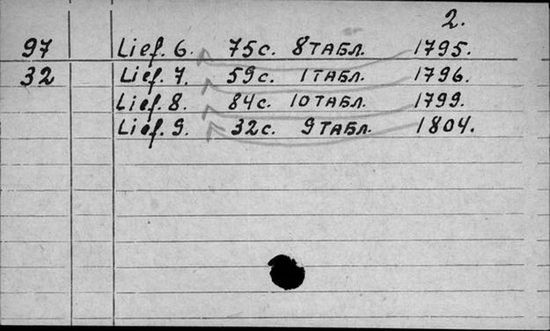 2.
97 Lief. 6. 75с. 8 ТАБЛ. 1795.
32 Lief. 7. 59с. 1 ТАБЛ. 1796.
Lief. 8. 84с. 10 ТАБЛ. 1799.
Lief. 9. 32с. 9 ТАБЛ. 1804.